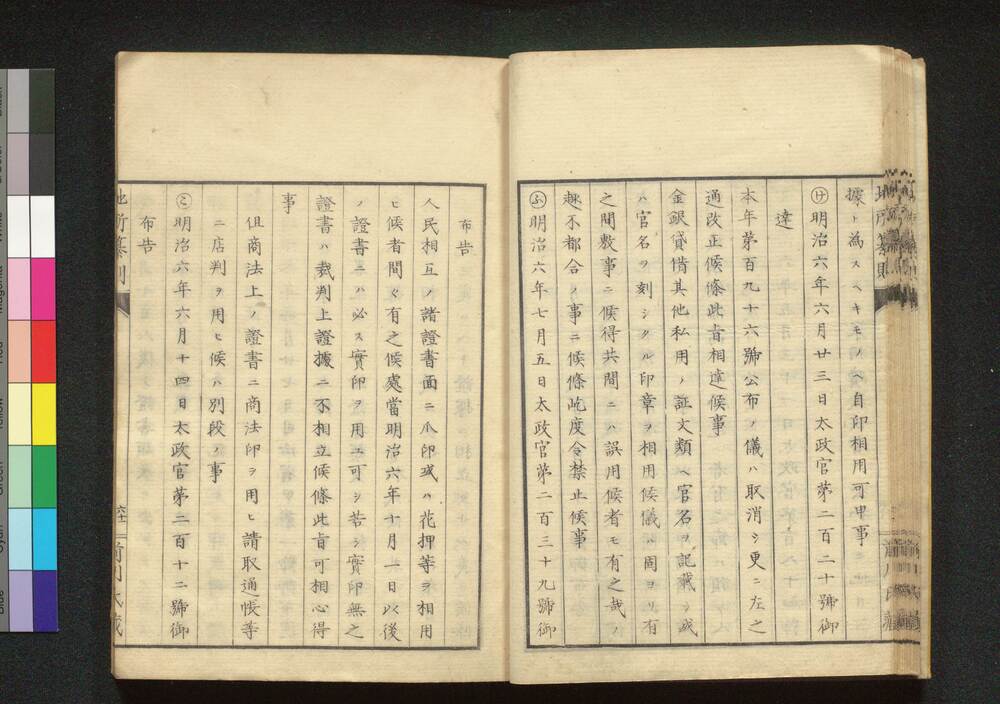 據ト為スヘキモノヘ自印相用可申事
㋘明治六年六月廿三日太政官第二百二十號御
達
本年第百九十六號公布ノ儀ハ取消シ更ニ左之
通改正候條此旨相達候事
金銀貸借其他私用ノ証文類ヘ官名ヲ記載シ或
ハ官名ヲ刻シタル印章ヲ相用候儀ハ固ヨリ有
之間敷事ニ候得共間ニハ誤用候者モ有之哉ノ
趣不都合ノ事ニ候條屹度令禁止候事
㋫明治六年七月五日太政官第二百三十九號御
布告
人民相互ノ諸證書面ニ爪印或ハ花押等ヲ相用
ヒ候者間々有之候處當明治六年十月一日以後
ノ證書ニハ必ス實印ヲ用ユ可シ若シ實印無之
證書ハ裁判上證據ニ不相立候條此旨可相心得
事
但商法上ノ證書ニ商法印ヲ用ヒ請取通帳等
ニ店判ヲ用ヒ候ハ別段ノ事
明治六年六月十四日太政官第二百十二號御
布告
地所纂則